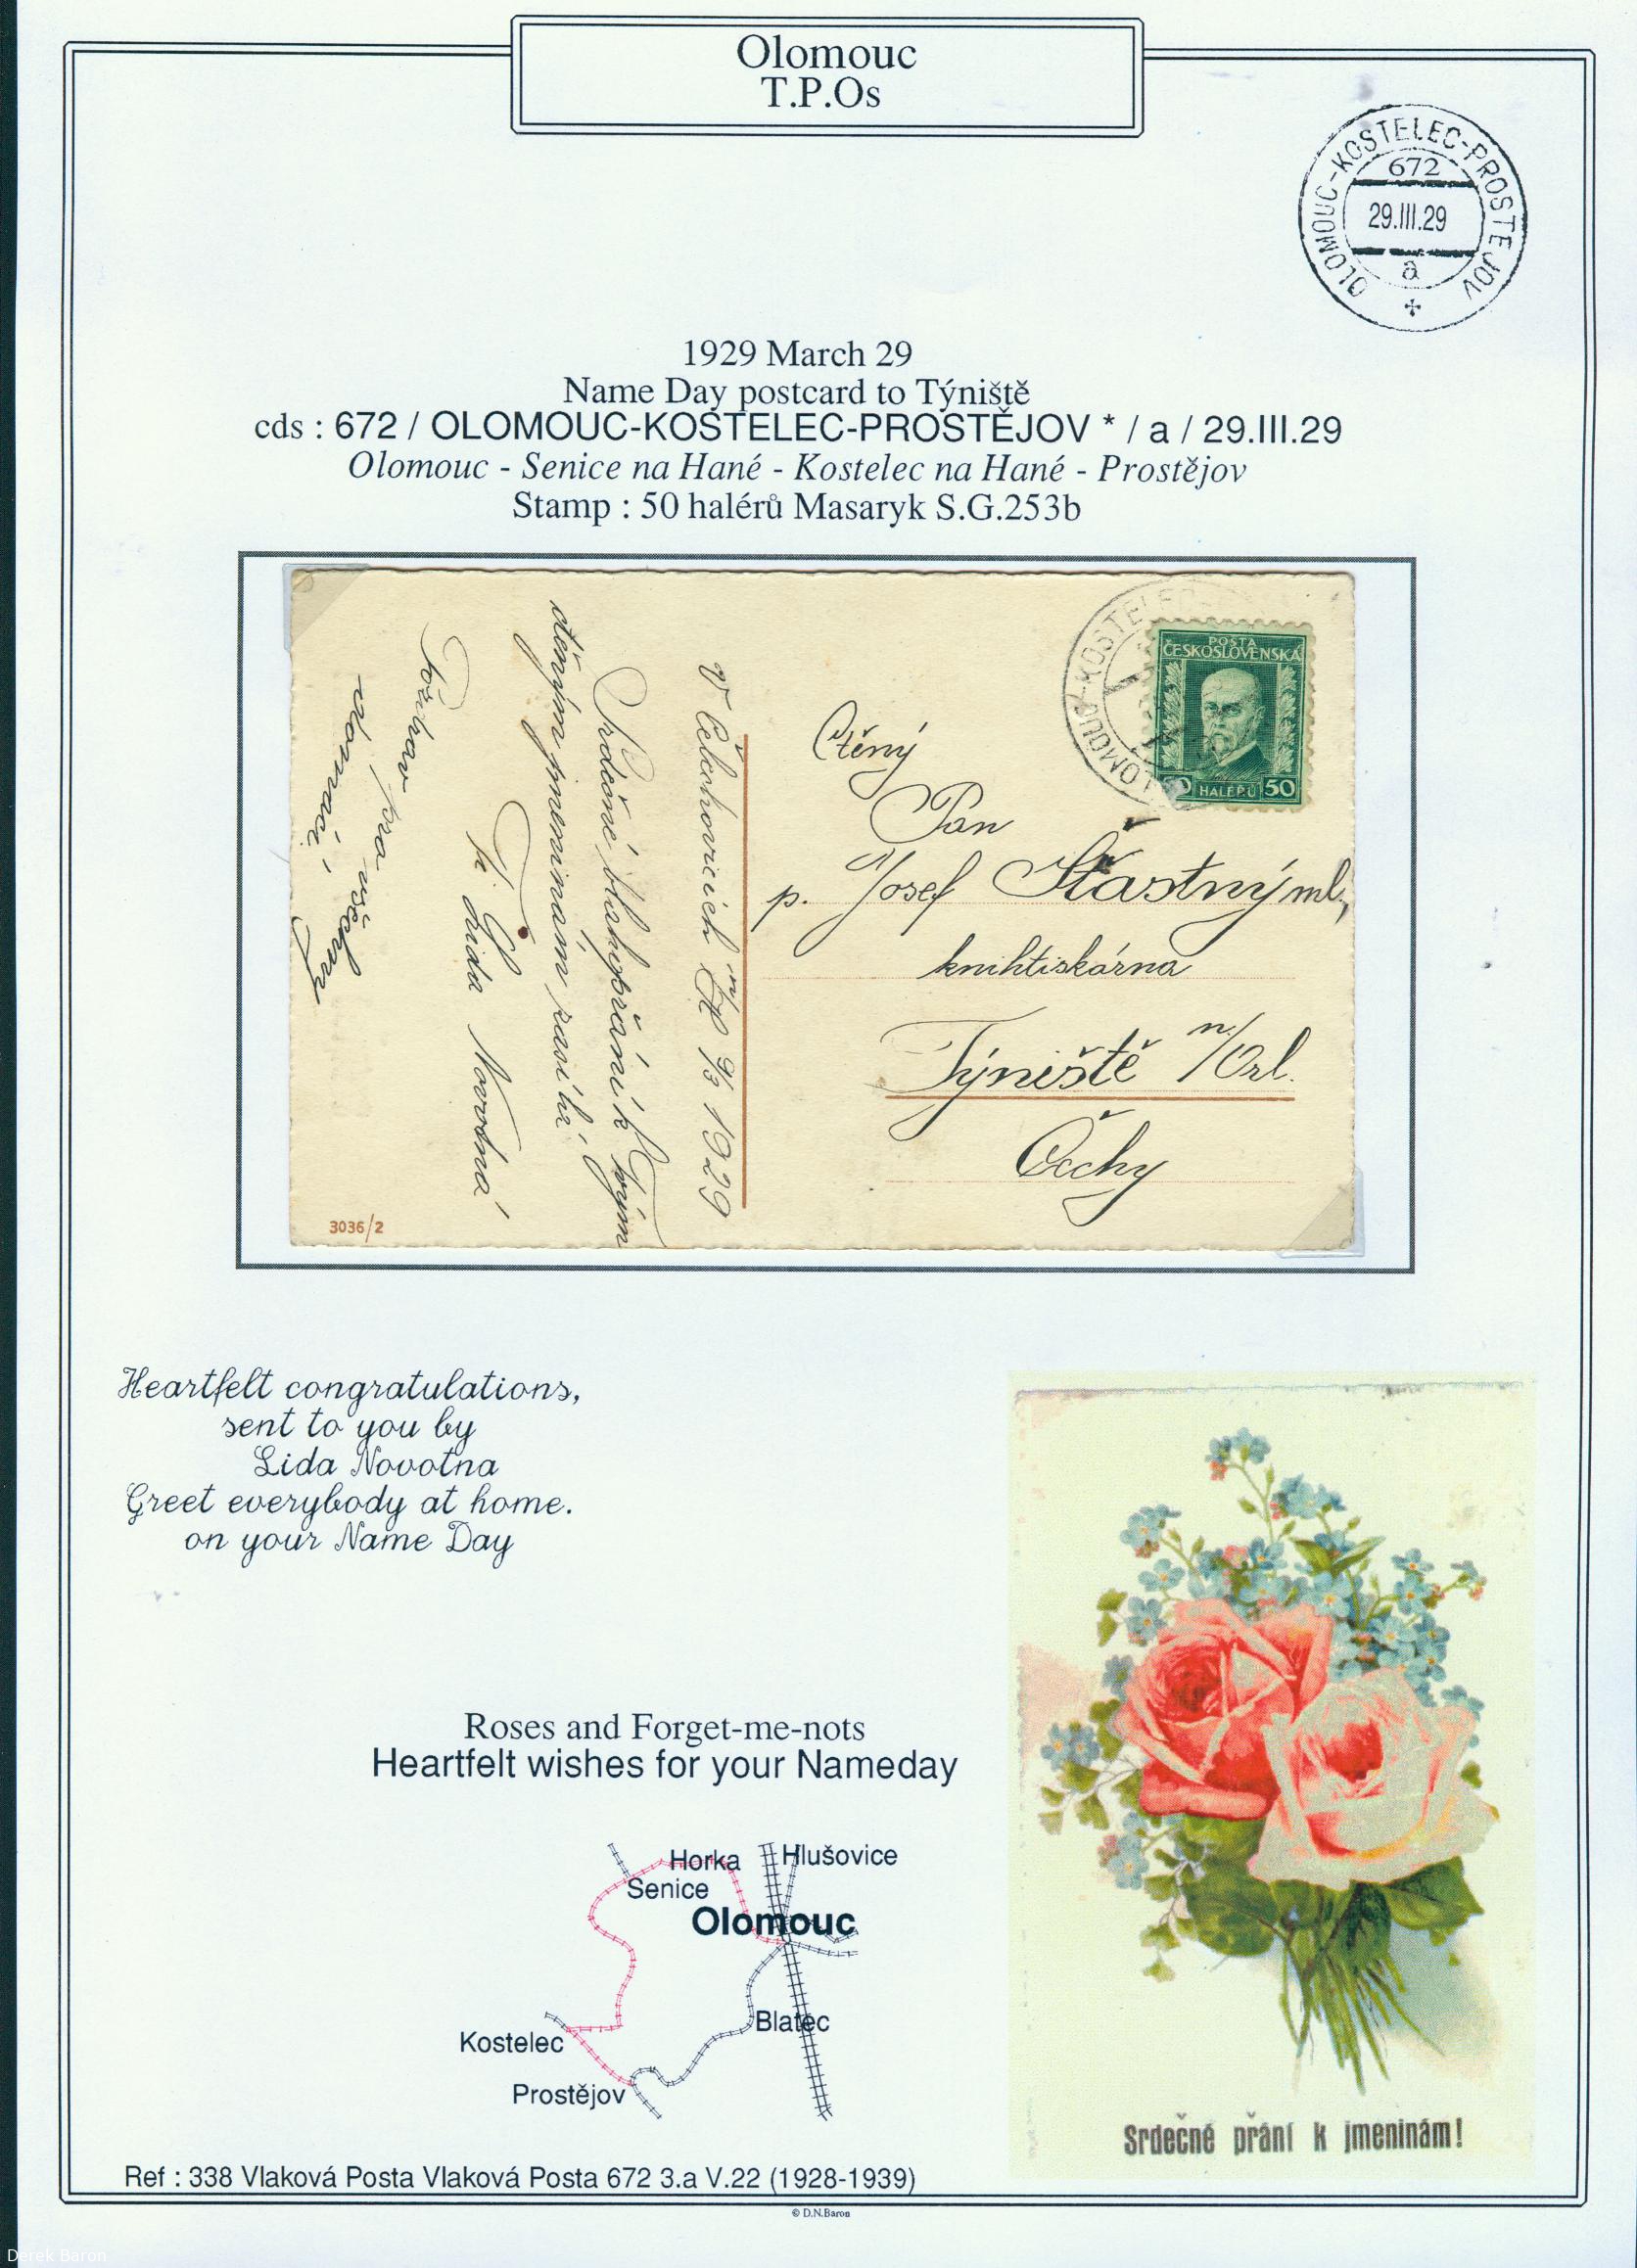 Olomouc
T.P.Os
OLOMOUC-KOSTELEC-PROSTĚJOV
672
29.III.29
a
1929 March 29
Name Day postcard to Týniště
cds : 672 / OLOMOUC-KOSTELEC-PROSTĚJOV * / a / 29.III.29
Olomouc - Senice na Hané - Kostelec na Hané - Prostějov
Stamp : 50 halérů Masaryk S.G.253b
OLOMOUC-KOSTELEC
POŠTA
ČESKOSLOVENSKÁ
50 HALÉŘŮ 50
Ctěný
Pan
p. Josef Šťastný ml.,
knihtiskárna
Týniště n/Orl.
Čechy
V Čelechovicích n/H 1929
Srdečné blahopřání k Vým
ctěným jmeninám zasílá
Ti Lida Novotná
Pozdrav pro všechny
domácí.
3036/2
Heartfelt congratulations,
sent to you by
Lida Novotna
Greet everybody at home.
on your Name Day
Roses and Forget-me-nots
Heartfelt wishes for your Nameday
Horka
Hlušovice
Senice
Olomouc
Blatec
Kostelec
Prostějov
Srdečné přání k jmeninám!
Ref : 338 Vlaková Posta Vlaková Posta 672 3.a V.22 (1928-1939)
© D.N.Baron
Derek Baron